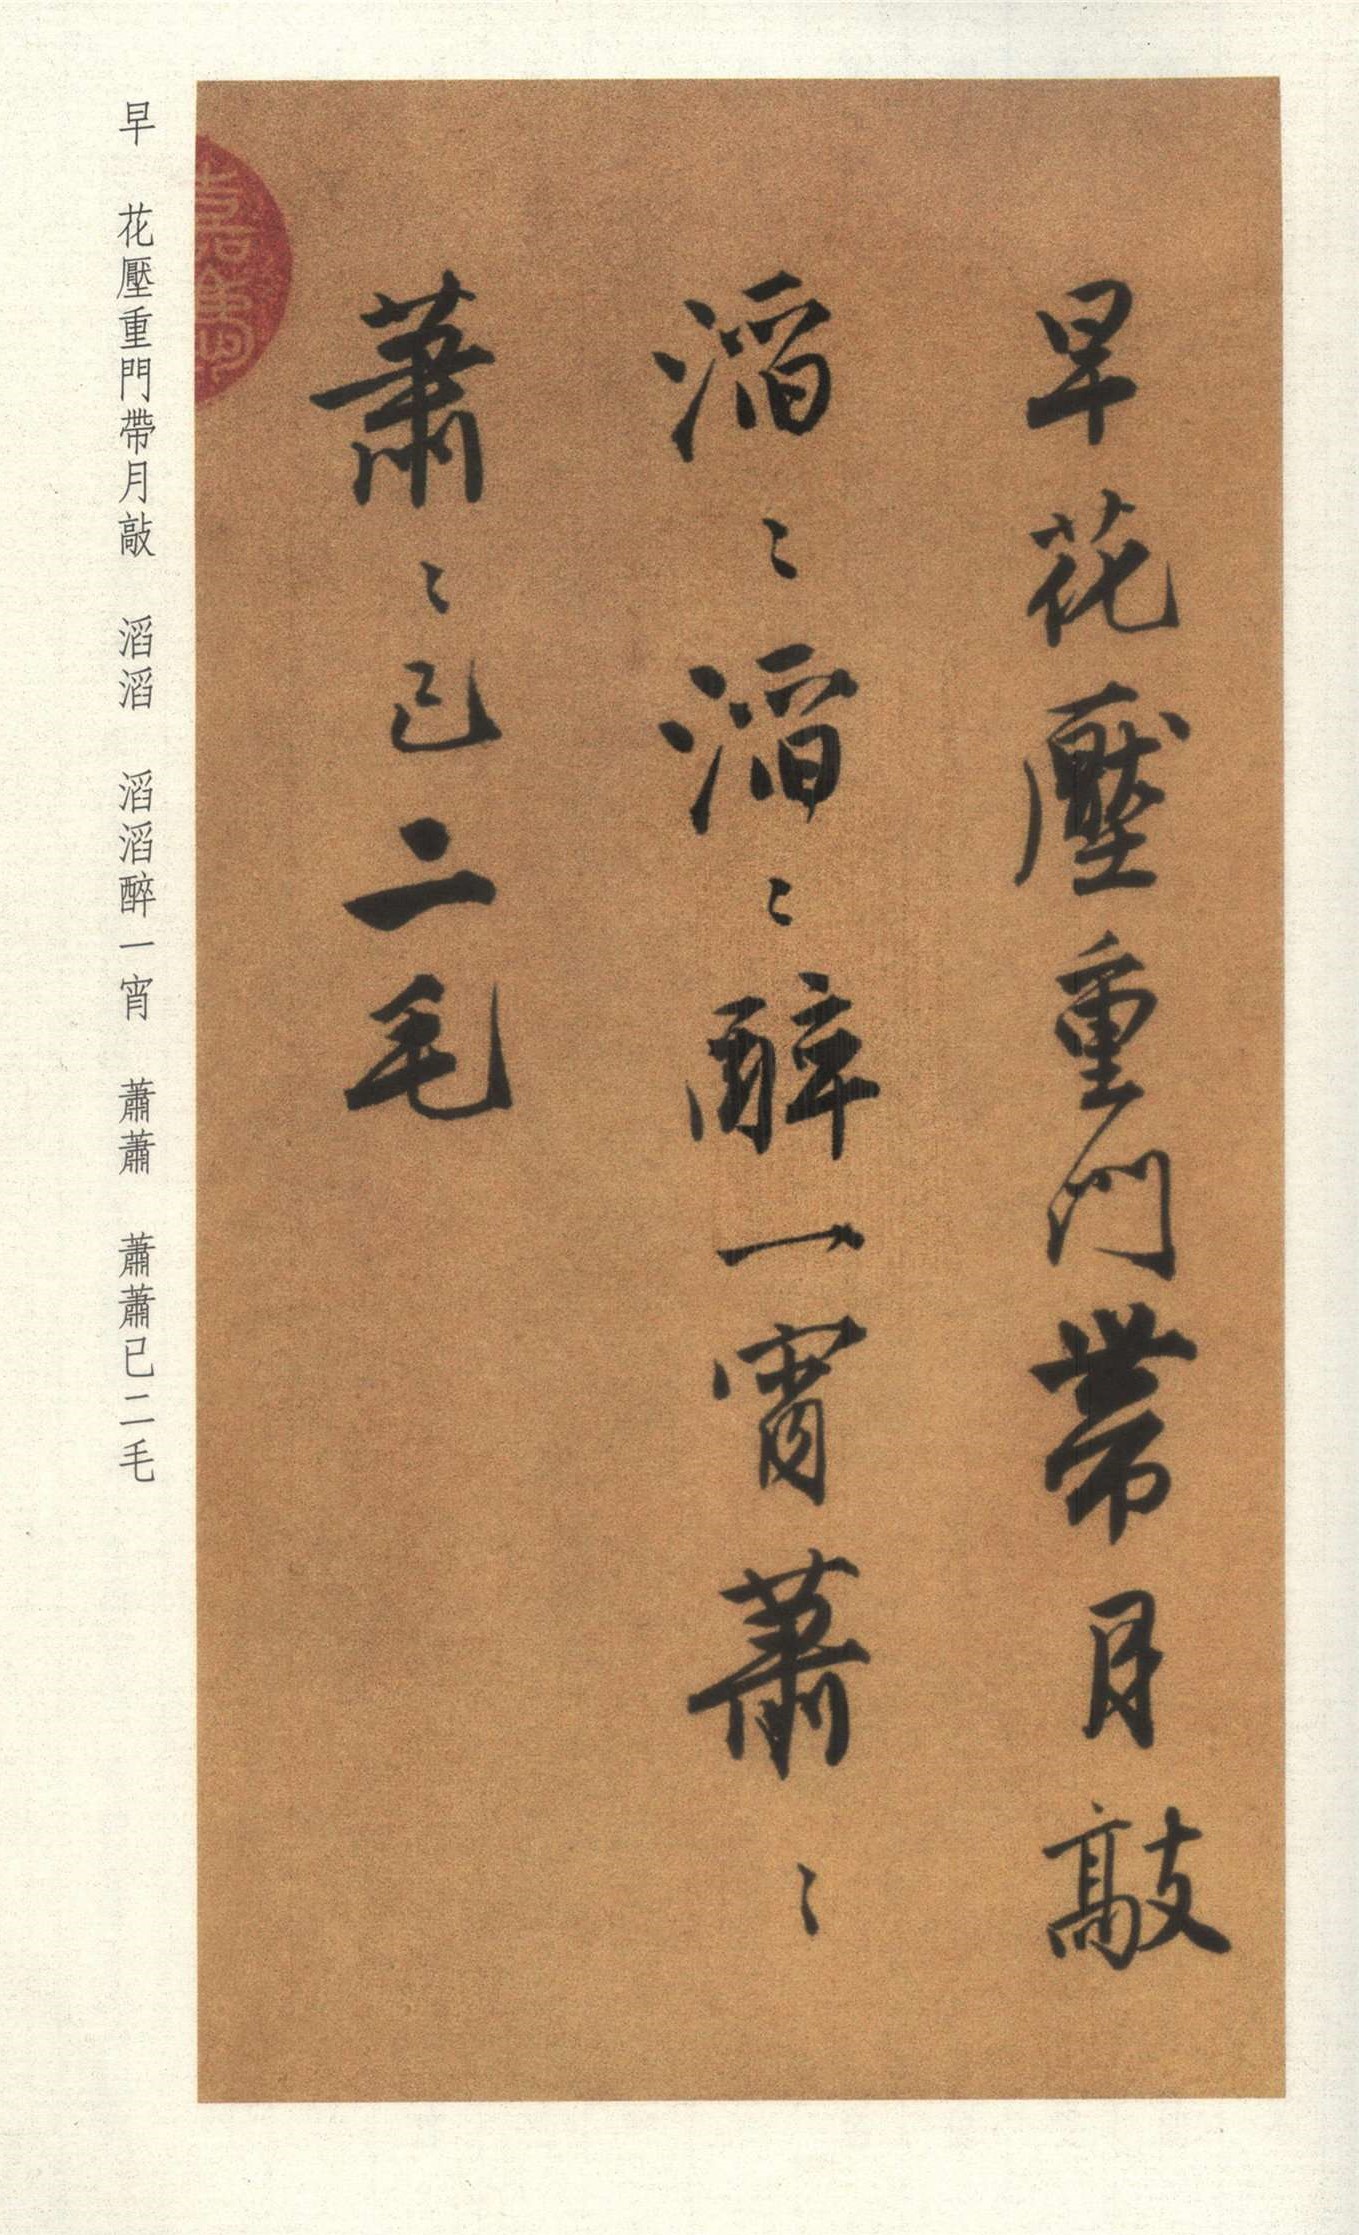 早花壓重門帶月敲
滔〻滔〻醉一宵蕭〻
蕭〻已二毛
早 花壓重門帶月敲 滔滔 滔滔醉一宵 蕭蕭 蕭蕭已二毛